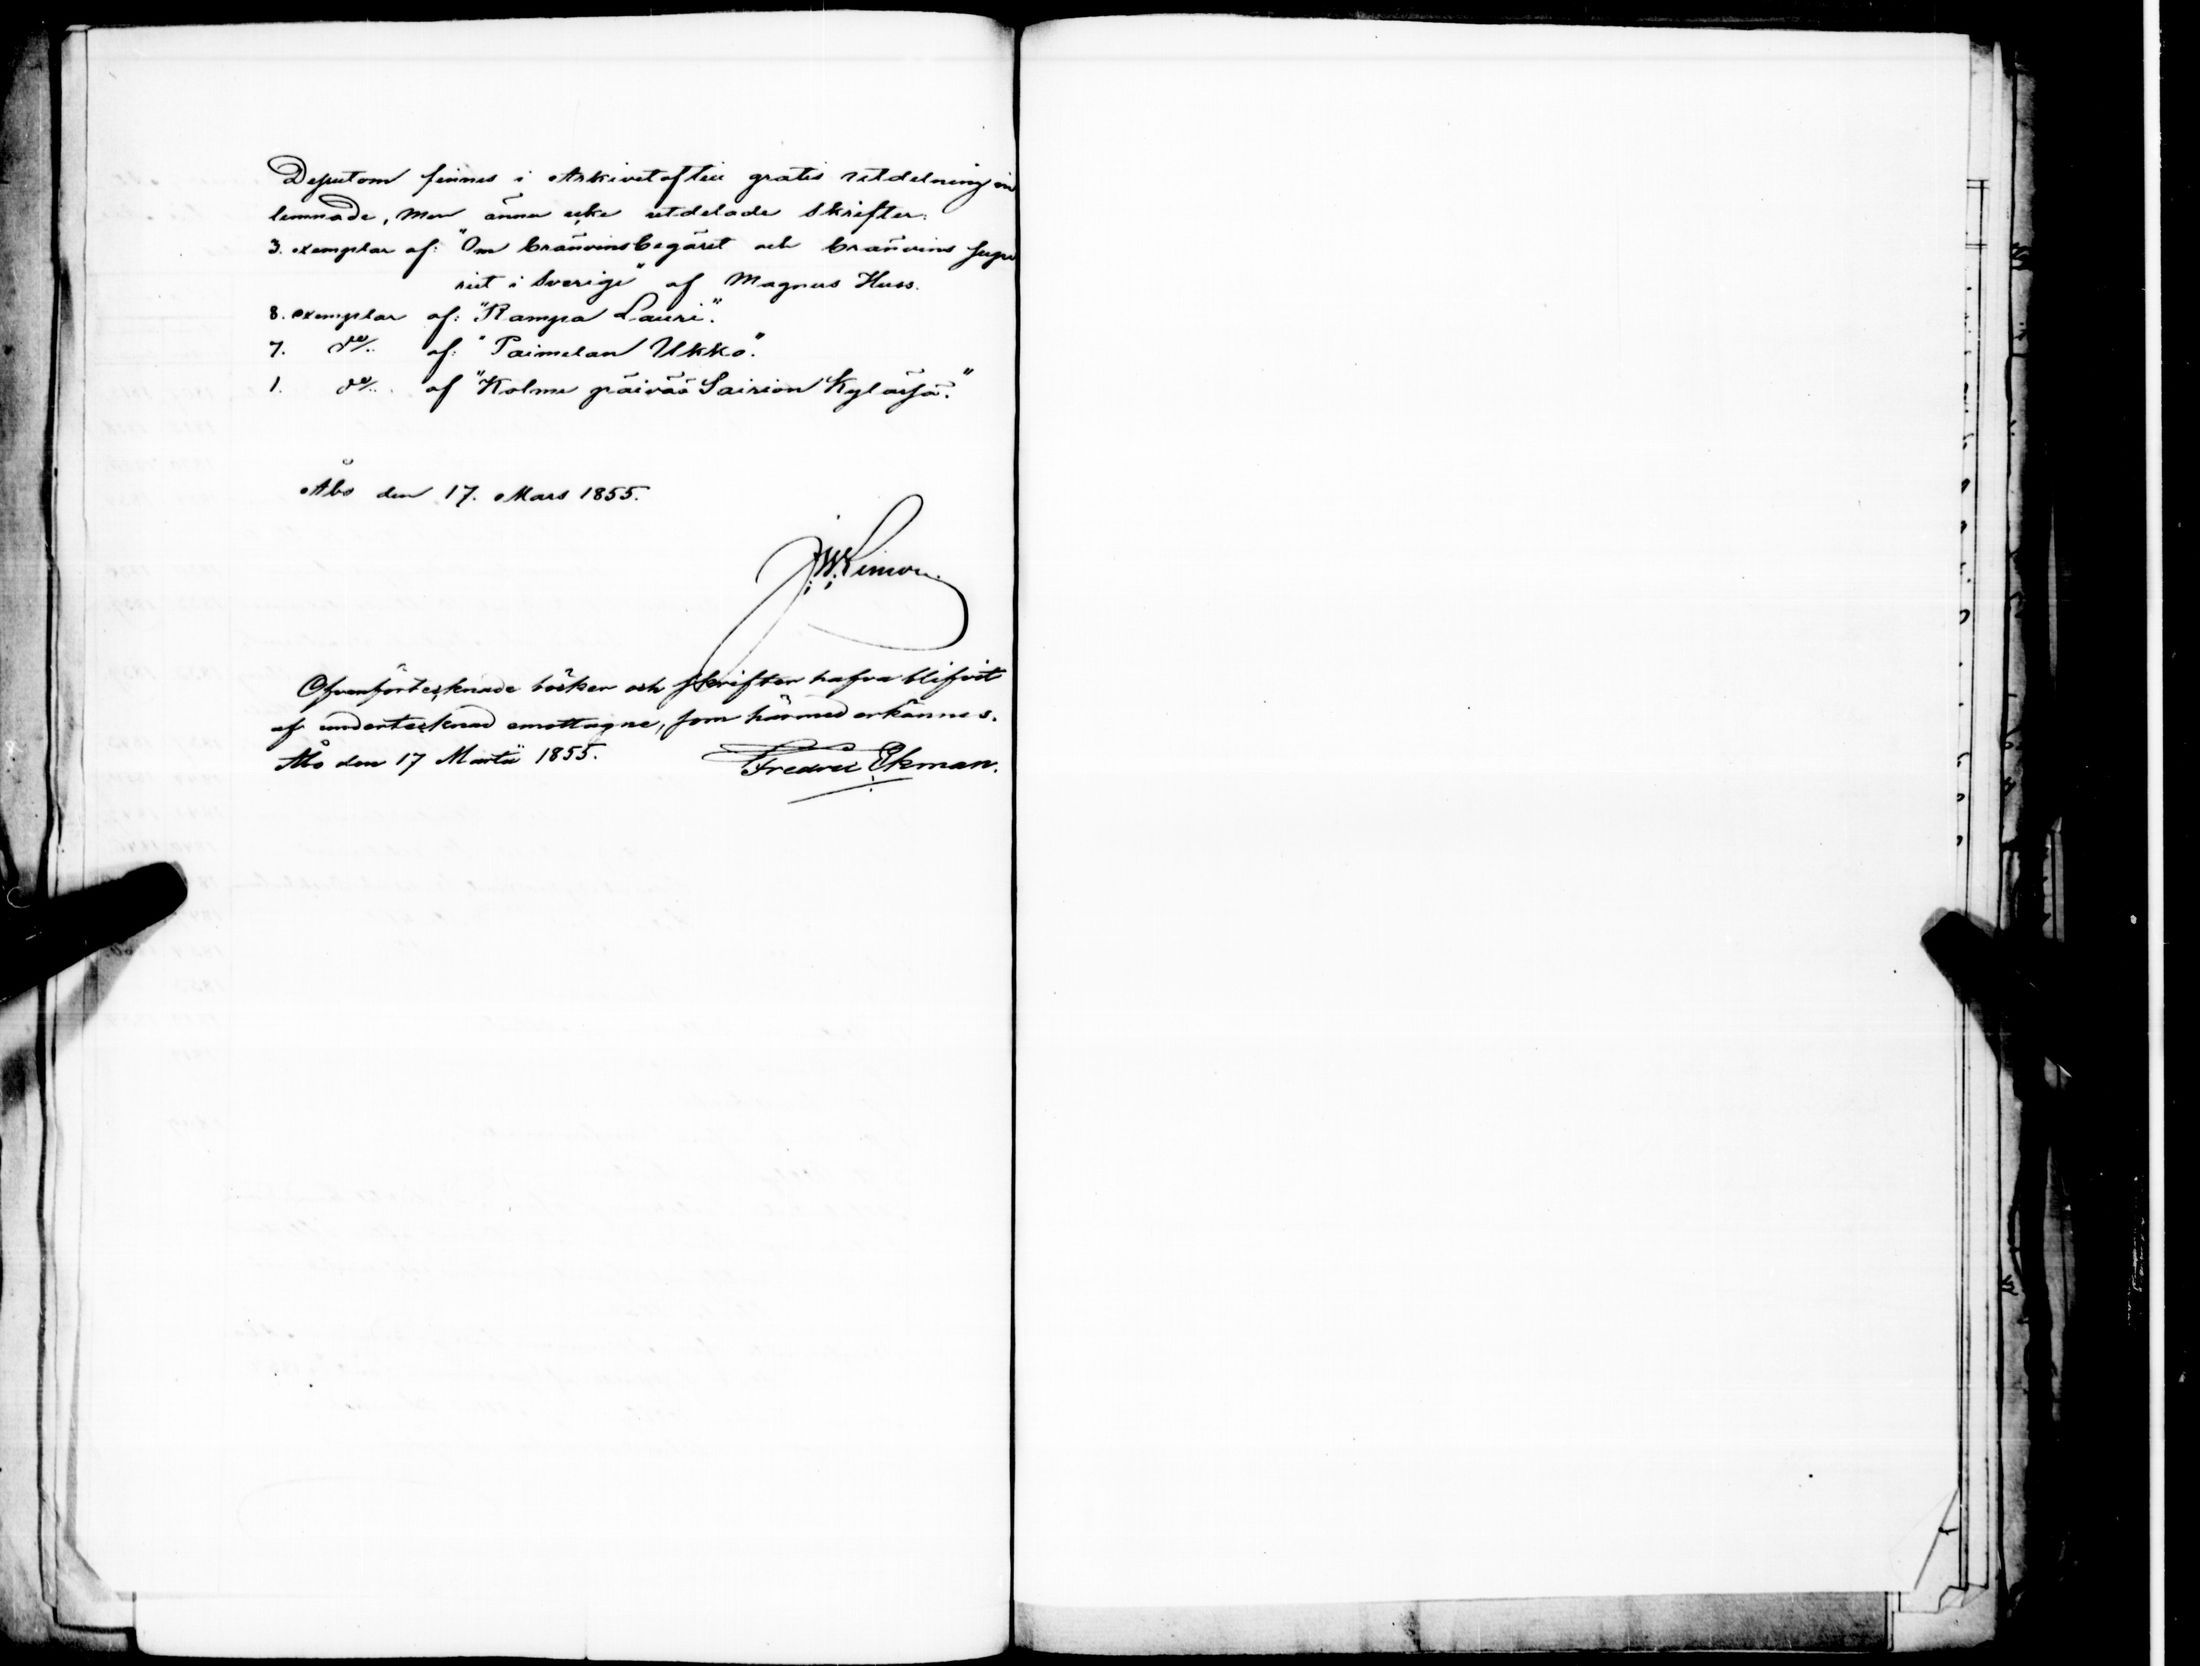 Desutom finnes i Arkivet af till gratis utdelning in
lemnade, men ännu icke utdelade skrifter:
3. exemplar af: "Om bränvinsbegäret och bränvins supe
riet i Sverige" af Magnus Huss.
8. exemplar af: "Rampa Lauri".
7. do/.. af: "Paimelan Ukko".
1. do/.. af "Kolme päivää Sairion Kyläsä."
Åbo den 17. Mars 1855.
Ofvanförtecknade böcker och skrifter hafva blifvit
af undertecknad emottagne, som härmed erkännes.
Åbo den 17 Martii 1855. Fredric Ekman.